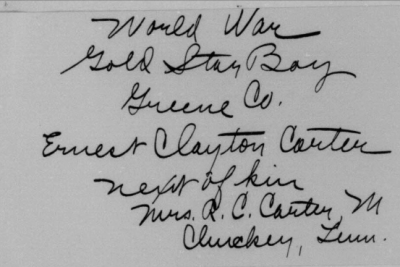 World War
Gold Star Boy
Greene Co.
Ernest Clayton Carter
next of kin
Mrs. R. C. Carter, M
Chuckey, Tenn.